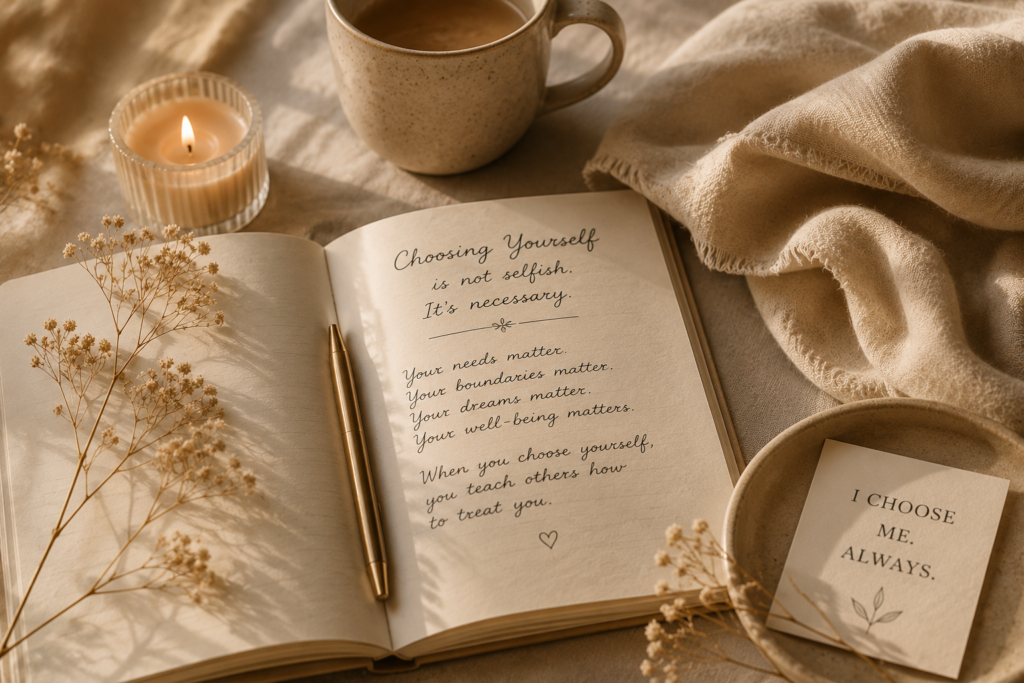 Choosing Yourself
is not selfish.
It's necessary.
Your needs matter.
Your boundaries matter.
Your dreams matter.
Your well-being matters.
When you choose yourself,
you teach others how
to treat you.
I CHOOSE
ME.
ALWAYS.